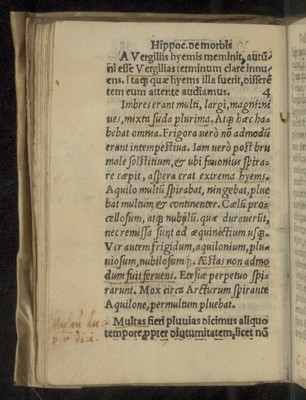 Hippoc. de morbis
A Vergiliis hyemis meminit, autũ/
ni esse Vergilias terminum clare innu/
ens. Itaq; quæ hyems illa fuerit, disserẽ
tem eum attente audiamus. 4
Imbres erant multi, largi, magni, ni
ues, mixta suda plurima. Atq; hæc ha/
bebat omnia. Frigora uerò nõ admodũ
erant intempestiua. Iam uerò post bru
male solstitium, & ubi fauonius spira/
re cœpit, aspera erat extrema hyems.
Aquilo multũ spirabat, ningebat, plue
bat multum & continenter. Cœlũ pro/
cellosum, atq; nubilũ. quæ durauerũt,
nec remissa sunt ad æquinoctium usq;.
Ver autem frigidum, aquilonium, plu/
uiosum, nubilosum q;. Æstas non admo
dum fuit feruens. Etesiæ perpetuo spi/
rarunt. Mox circa Arcturum spirante
Aquilone, permultum pluebat.
Multas fieri pluuias dicimus aliquo
tempore, ppter diuturnitatem, licet nõ